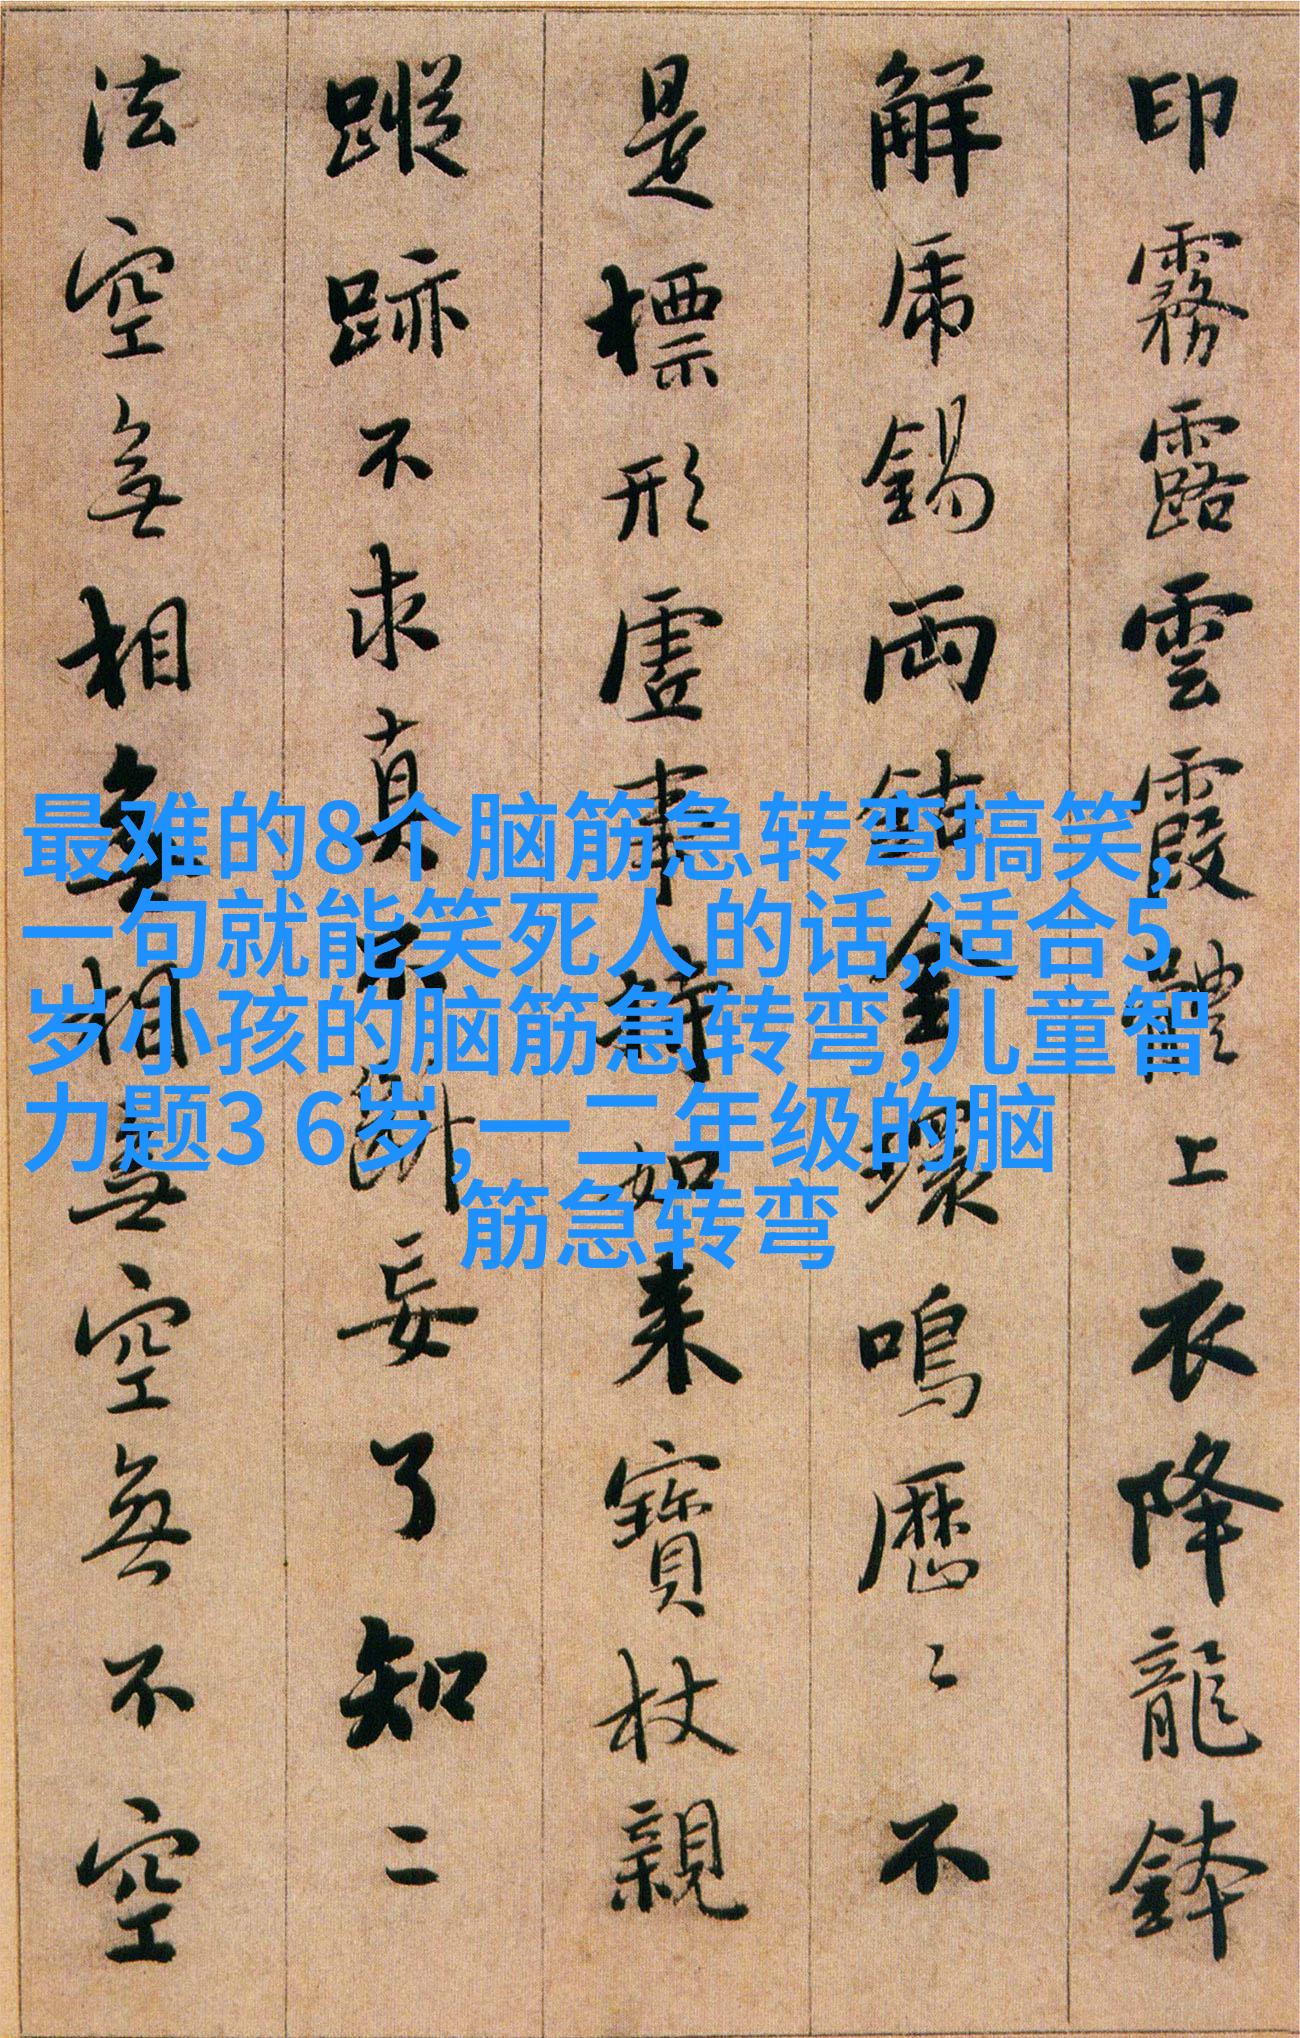 印霧露雲霞體上衣降龍鉢
解虎錫兩鈷金環鳴歷〻不
是標形虛事持如来寶杖親
蹤跡不求真不斷妄了知二
法空無相無相無空無不空
最难的8个脑筋急转弯搞笑,
一句就能笑死人的话,适合5
岁小孩的脑筋急转弯,儿童智
力题3 6岁,一 二年级的脑
筋急转弯